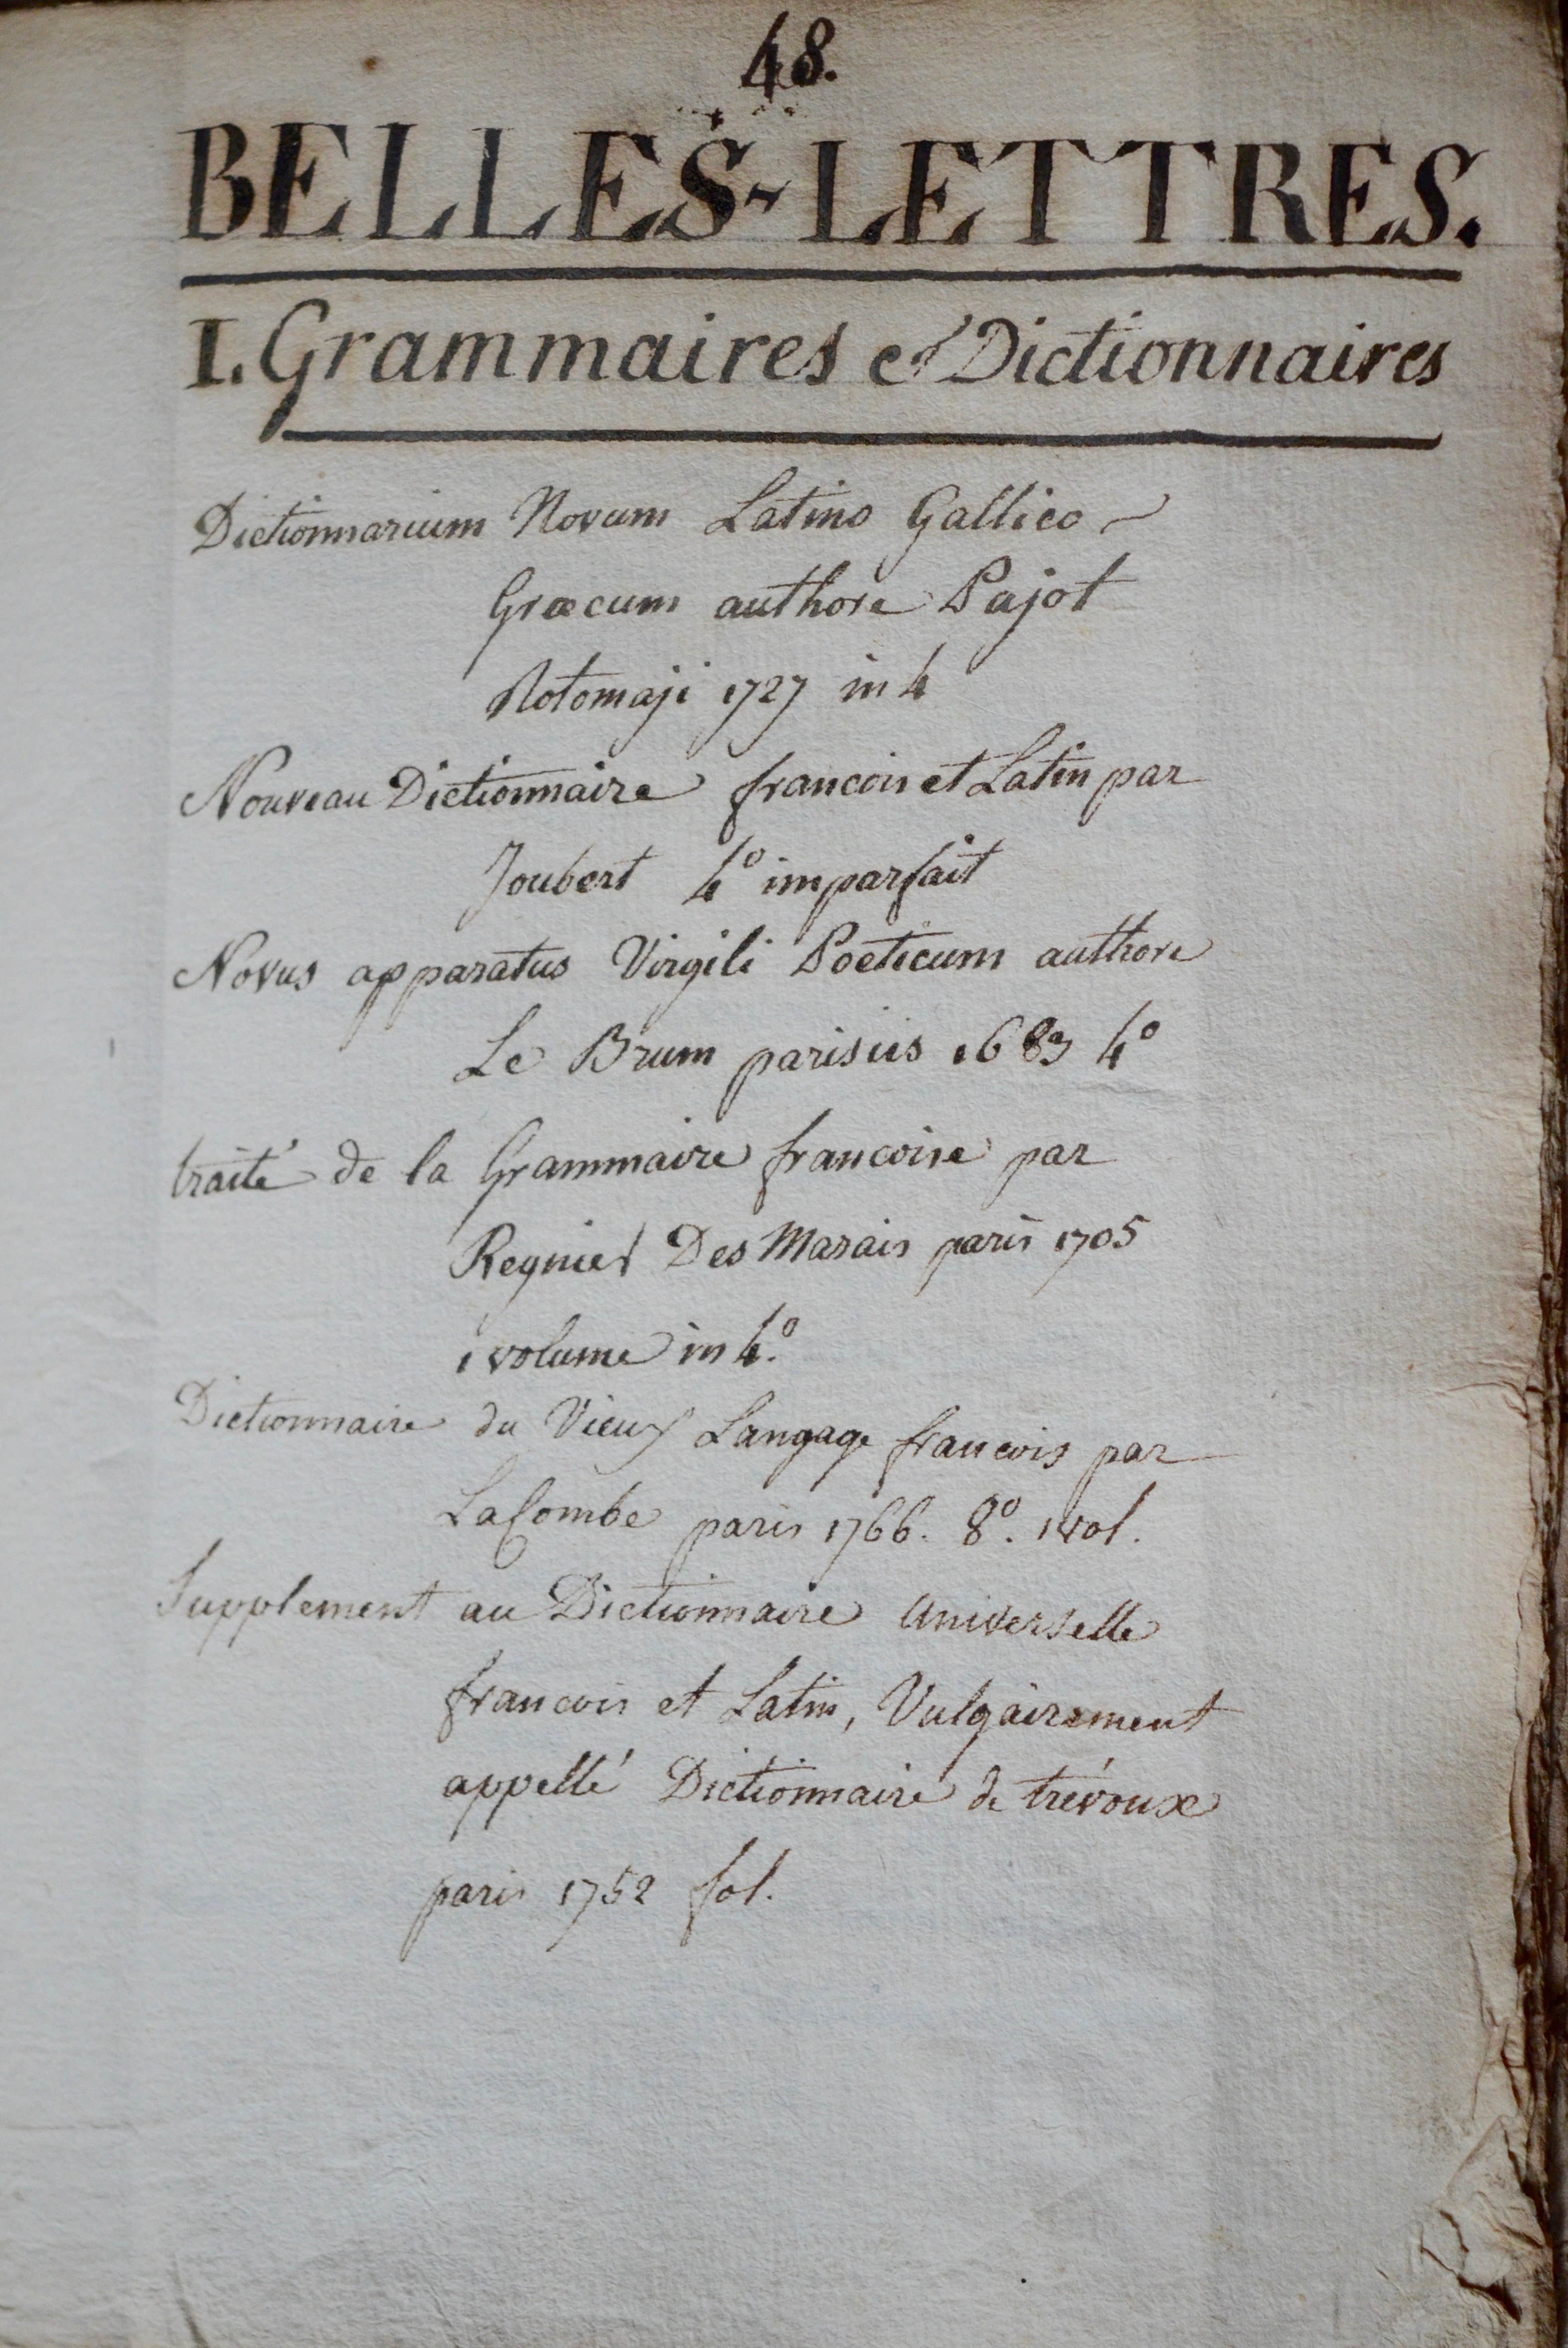 48.
BELLES-LETTRES.
I. Grammaires et Dictionnaires
Dictionnarium Novum Latino Gallico
Græcum authore Pajot
Rotomaji 1727 in 4
Nouveau Dictionnaire francois et Latin par
Joubert 4° imparfait
Novus apparatus Virgili Poeticum authore
Le Brum parisiis 1683 4°
traité de la Grammaire francoise par
Regnier Des Marais paris 1705
1 volume in 4.°
Dictionnaire du Vieux Langage francois par
LaCombe paris 1766. 8°. 1 vol.
Supplement au Dictionnaire Universelle
francois et Latin, Vulgairement
appellé Dictionnaire de trévoux
paris 1752 fol.